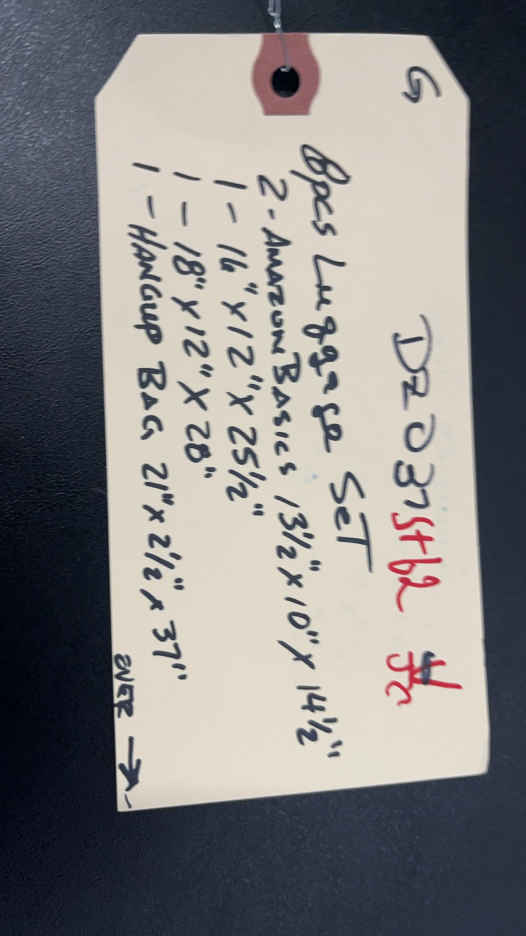 G
DZ037 St62
8pcs Luggage SET
2 - AMAZON BASICS 13½" X 10" X 14½"
1 - 16" X 12" X 25½"
1 - 18" X 12" X 28"
1 - HANGUP BAG 21" X 2½" X 37"
OVER →